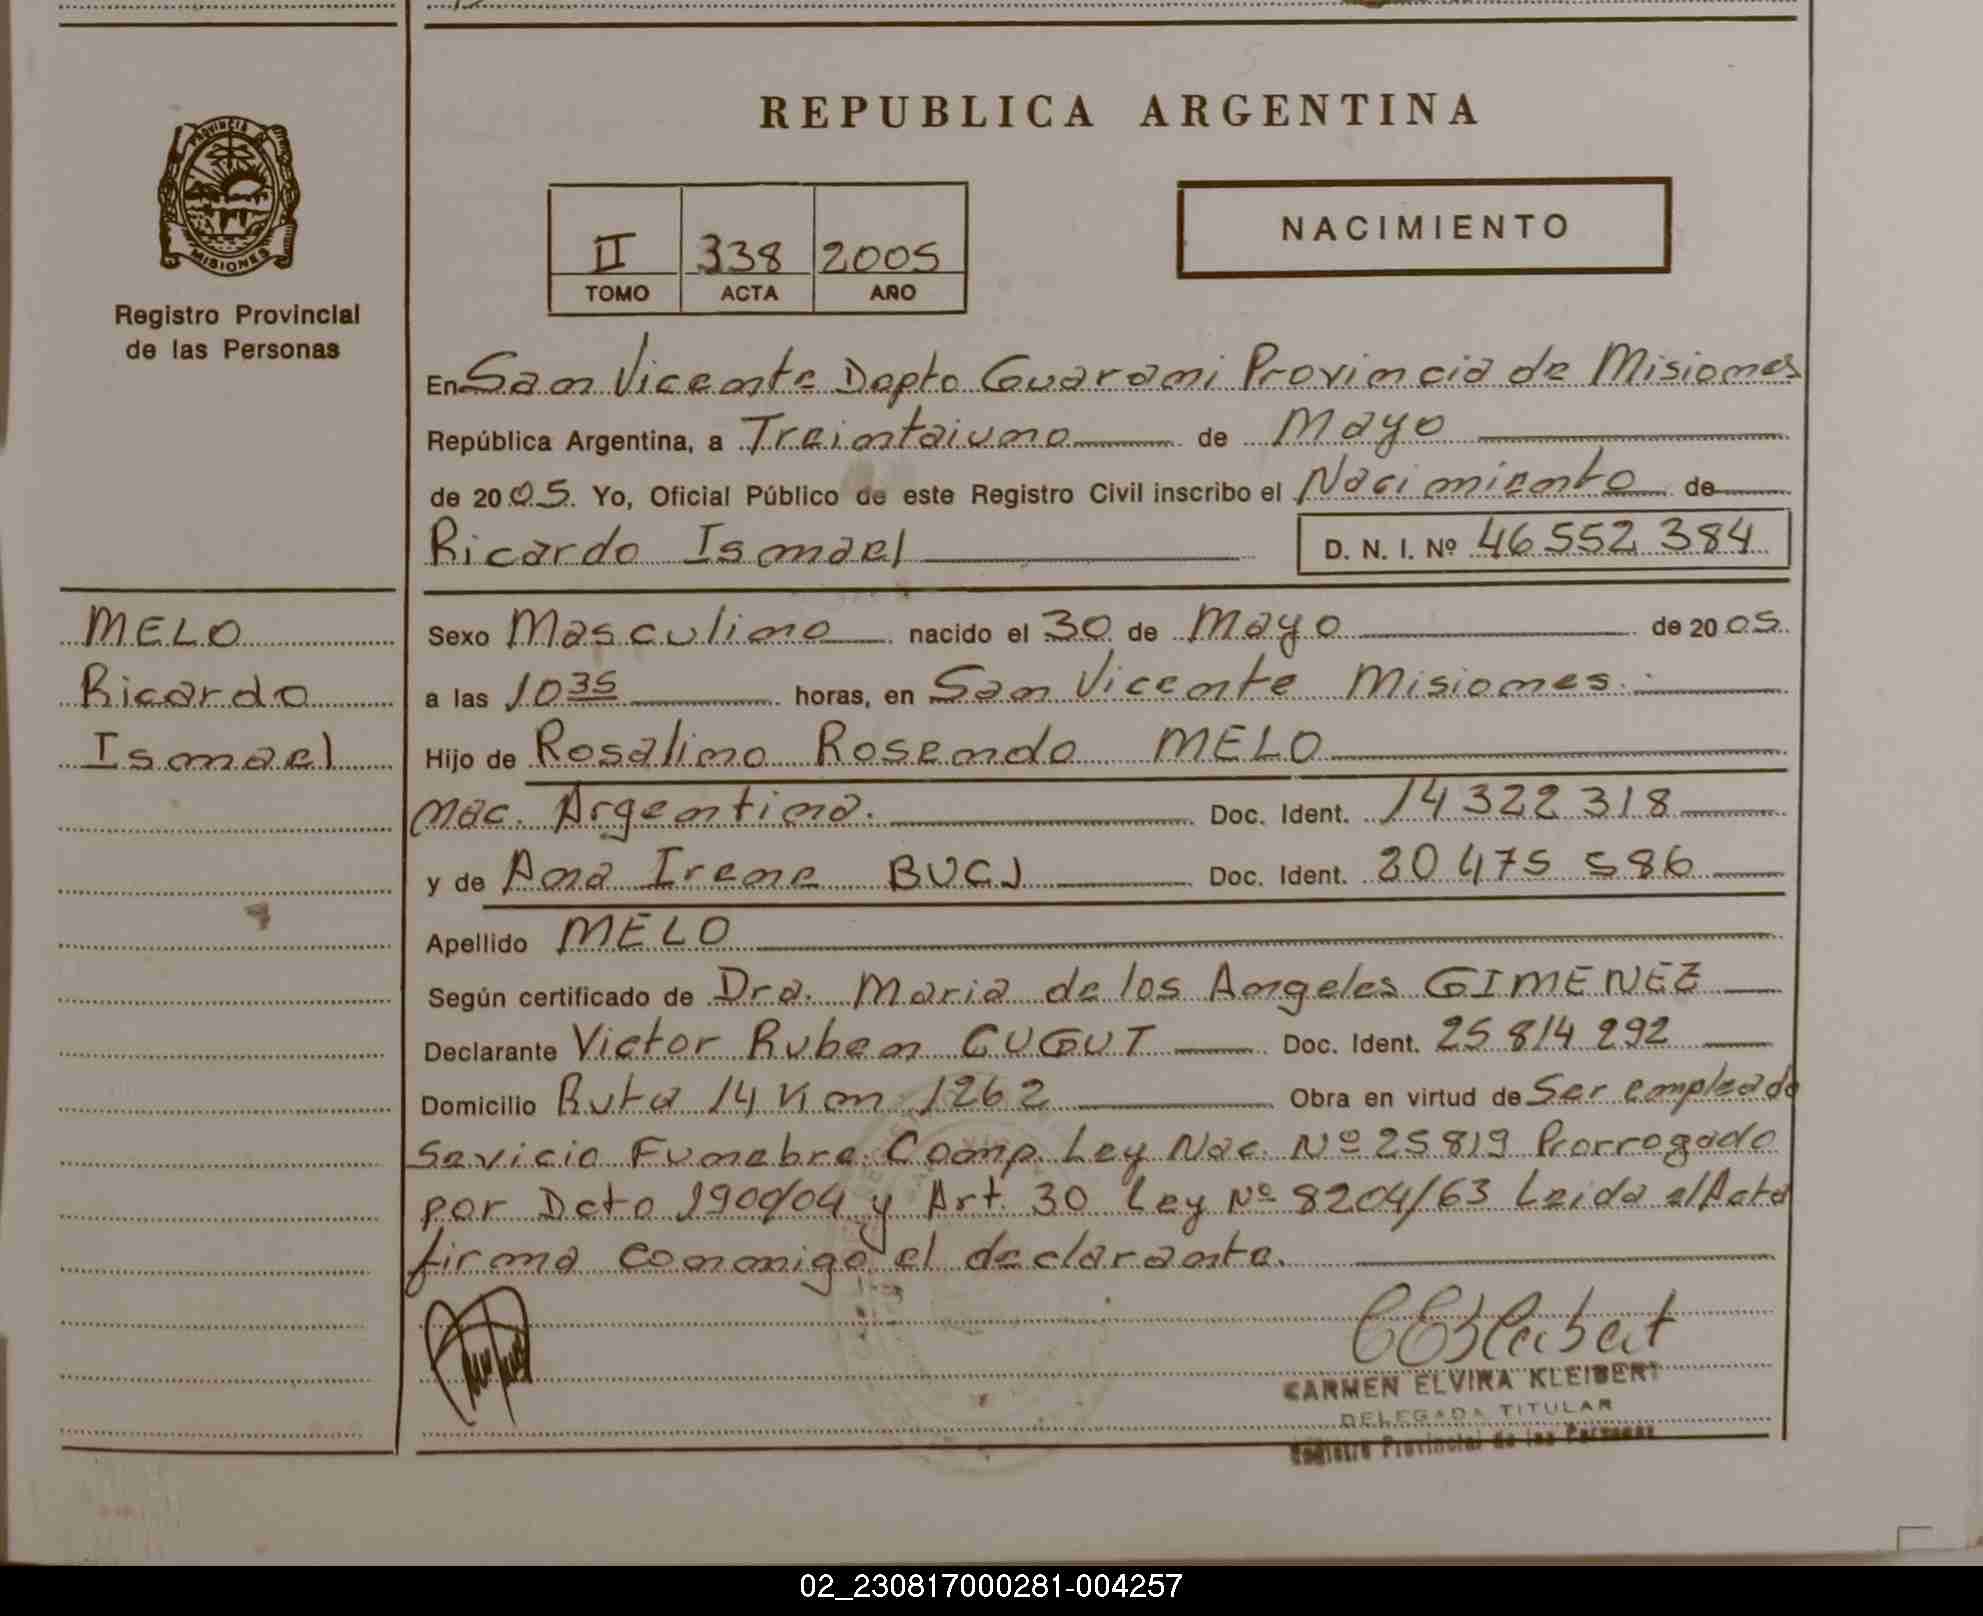 REPUBLICA ARGENTINA
PROVINCIA DE
MISIONES
Registro Provincial
de las Personas
II 338 2005
TOMO ACTA AÑO
NACIMIENTO
En San Vicente Dapto Guarani Provincia de Misiones
República Argentina, a Treintaiuno de Mayo
de 2005. Yo, Oficial Público de este Registro Civil inscribo el Nacimiento de
Ricardo Ismael D. N. I. Nº 46 552 384
MELO
Ricardo
Ismael
Sexo Masculino nacido el 30 de Mayo de 2005.
a las 10 35 horas, en San Vicente Misiones.
Hijo de Rosalino Rosendo MELO
nac. Argentina. Doc. Ident. 14 322 318
y de Ana Irene Doc. Ident. 475 586
Apellido MELO
Según certificado de Dra. Maria de los Angeles GIMENEZ
Declarante Victor Ruben Doc. Ident. 25 814 292
Domicilio Ruta 14 Km 1262 Obra en virtud de Ser empleado
Sevicio Funebre. Comp. Ley Nac. Nº 25819 Prorrogado
por Dcto 1900/04 y Art. 30 Ley Nº 8204/63 Leida el Acta
firma conmigo el declarante.
CEKleibert
CARMEN ELVIRA KLEIBERT
DELEGADA TITULAR
Registro Provincial de las Personas
02_230817000281-004257